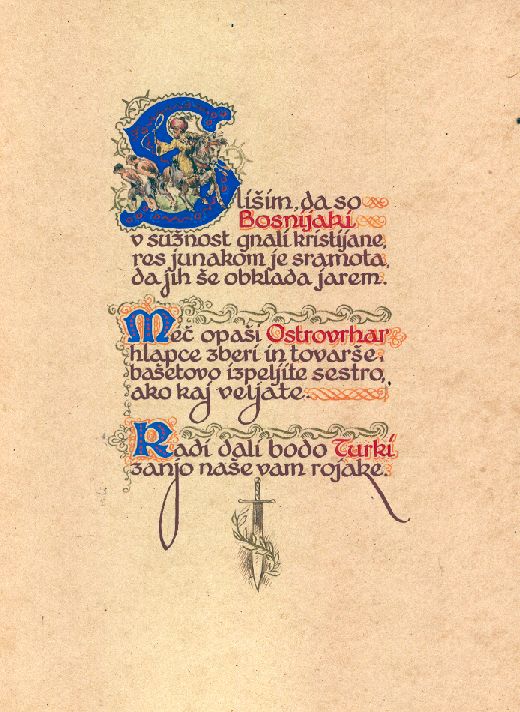 Slišim, da so
Bosnijaki
v sužnost gnali kristijane,
res junakom je sramota,
da jih še obklada jarem.
Meč opaši Ostrovrhar
hlapce zberi in tovarše,
bašetovo izpeljite sestro,
ako kaj veljate.
Radi dali bodo Turki
zanjo naše vam rojake.